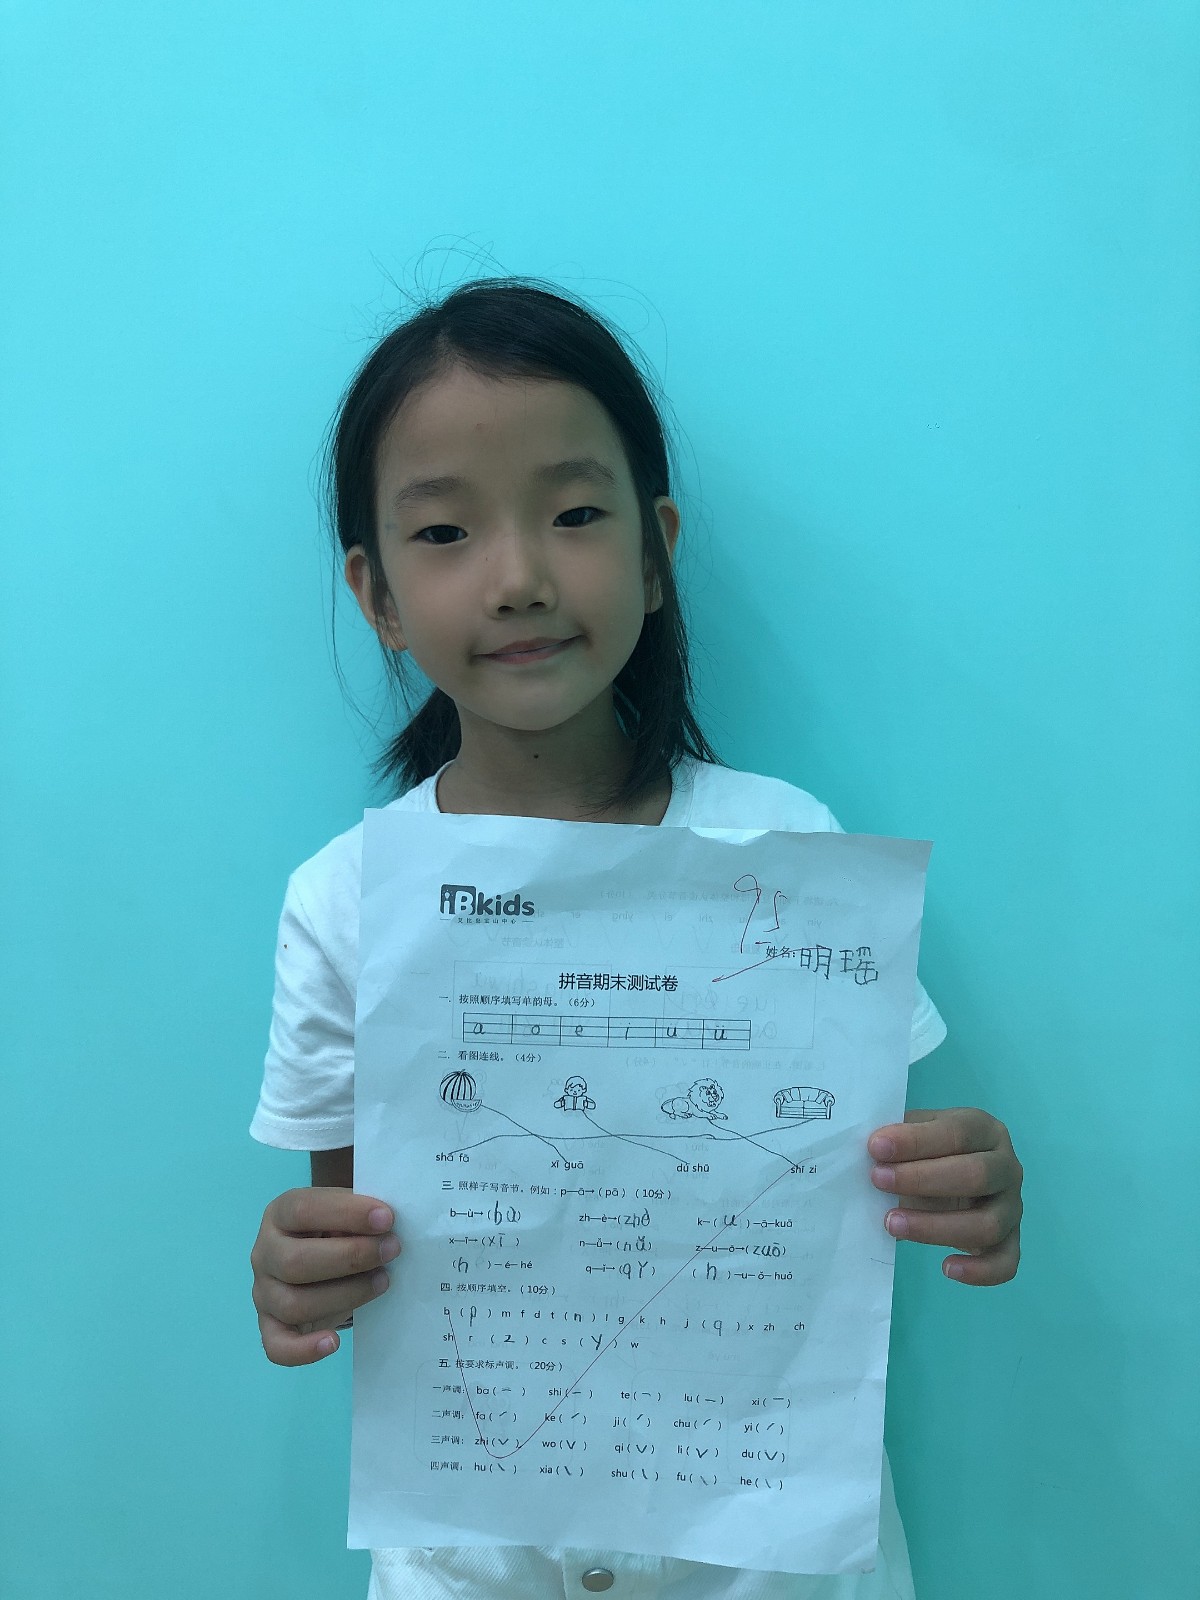 iBkids
艾比岛宝山中心
95
姓名:明瑶
拼音期末测试卷
一. 按照顺序填写单韵母。（6分）
a o e i u ü
二. 看图连线。（4分）
shā fā xī guā dú shū shī zi
三. 照样子写音节。例如：p—ā→（pā）（10分）
b—ù→（bù） zh—è→（zhè） k—（u）—ā—kuā
x—ī→（xī） n—ǚ→（nǚ） z—u—ō→（zuō）
（h）—é—hé q—ǐ→（qǐ） （h）—u—ǒ—huǒ
四. 按顺序填空。（10分）
b （p） m f d t （n） l g k h j （q） x zh ch
sh r （z） c s （y） w
五. 按要求标声调。（20分）
一声调： ba（ˉ） shi（ˉ） te（ˉ） lu（ˉ） xi（ˉ）
二声调： fa（ˊ） ke（ˊ） ji（ˊ） chu（ˊ） yi（ˊ）
三声调： zhi（ˇ） wo（ˇ） qi（ˇ） li（ˇ） du（ˇ）
四声调： hu（ˋ） xia（ˋ） shu（ˋ） fu（ˋ） he（ˋ）